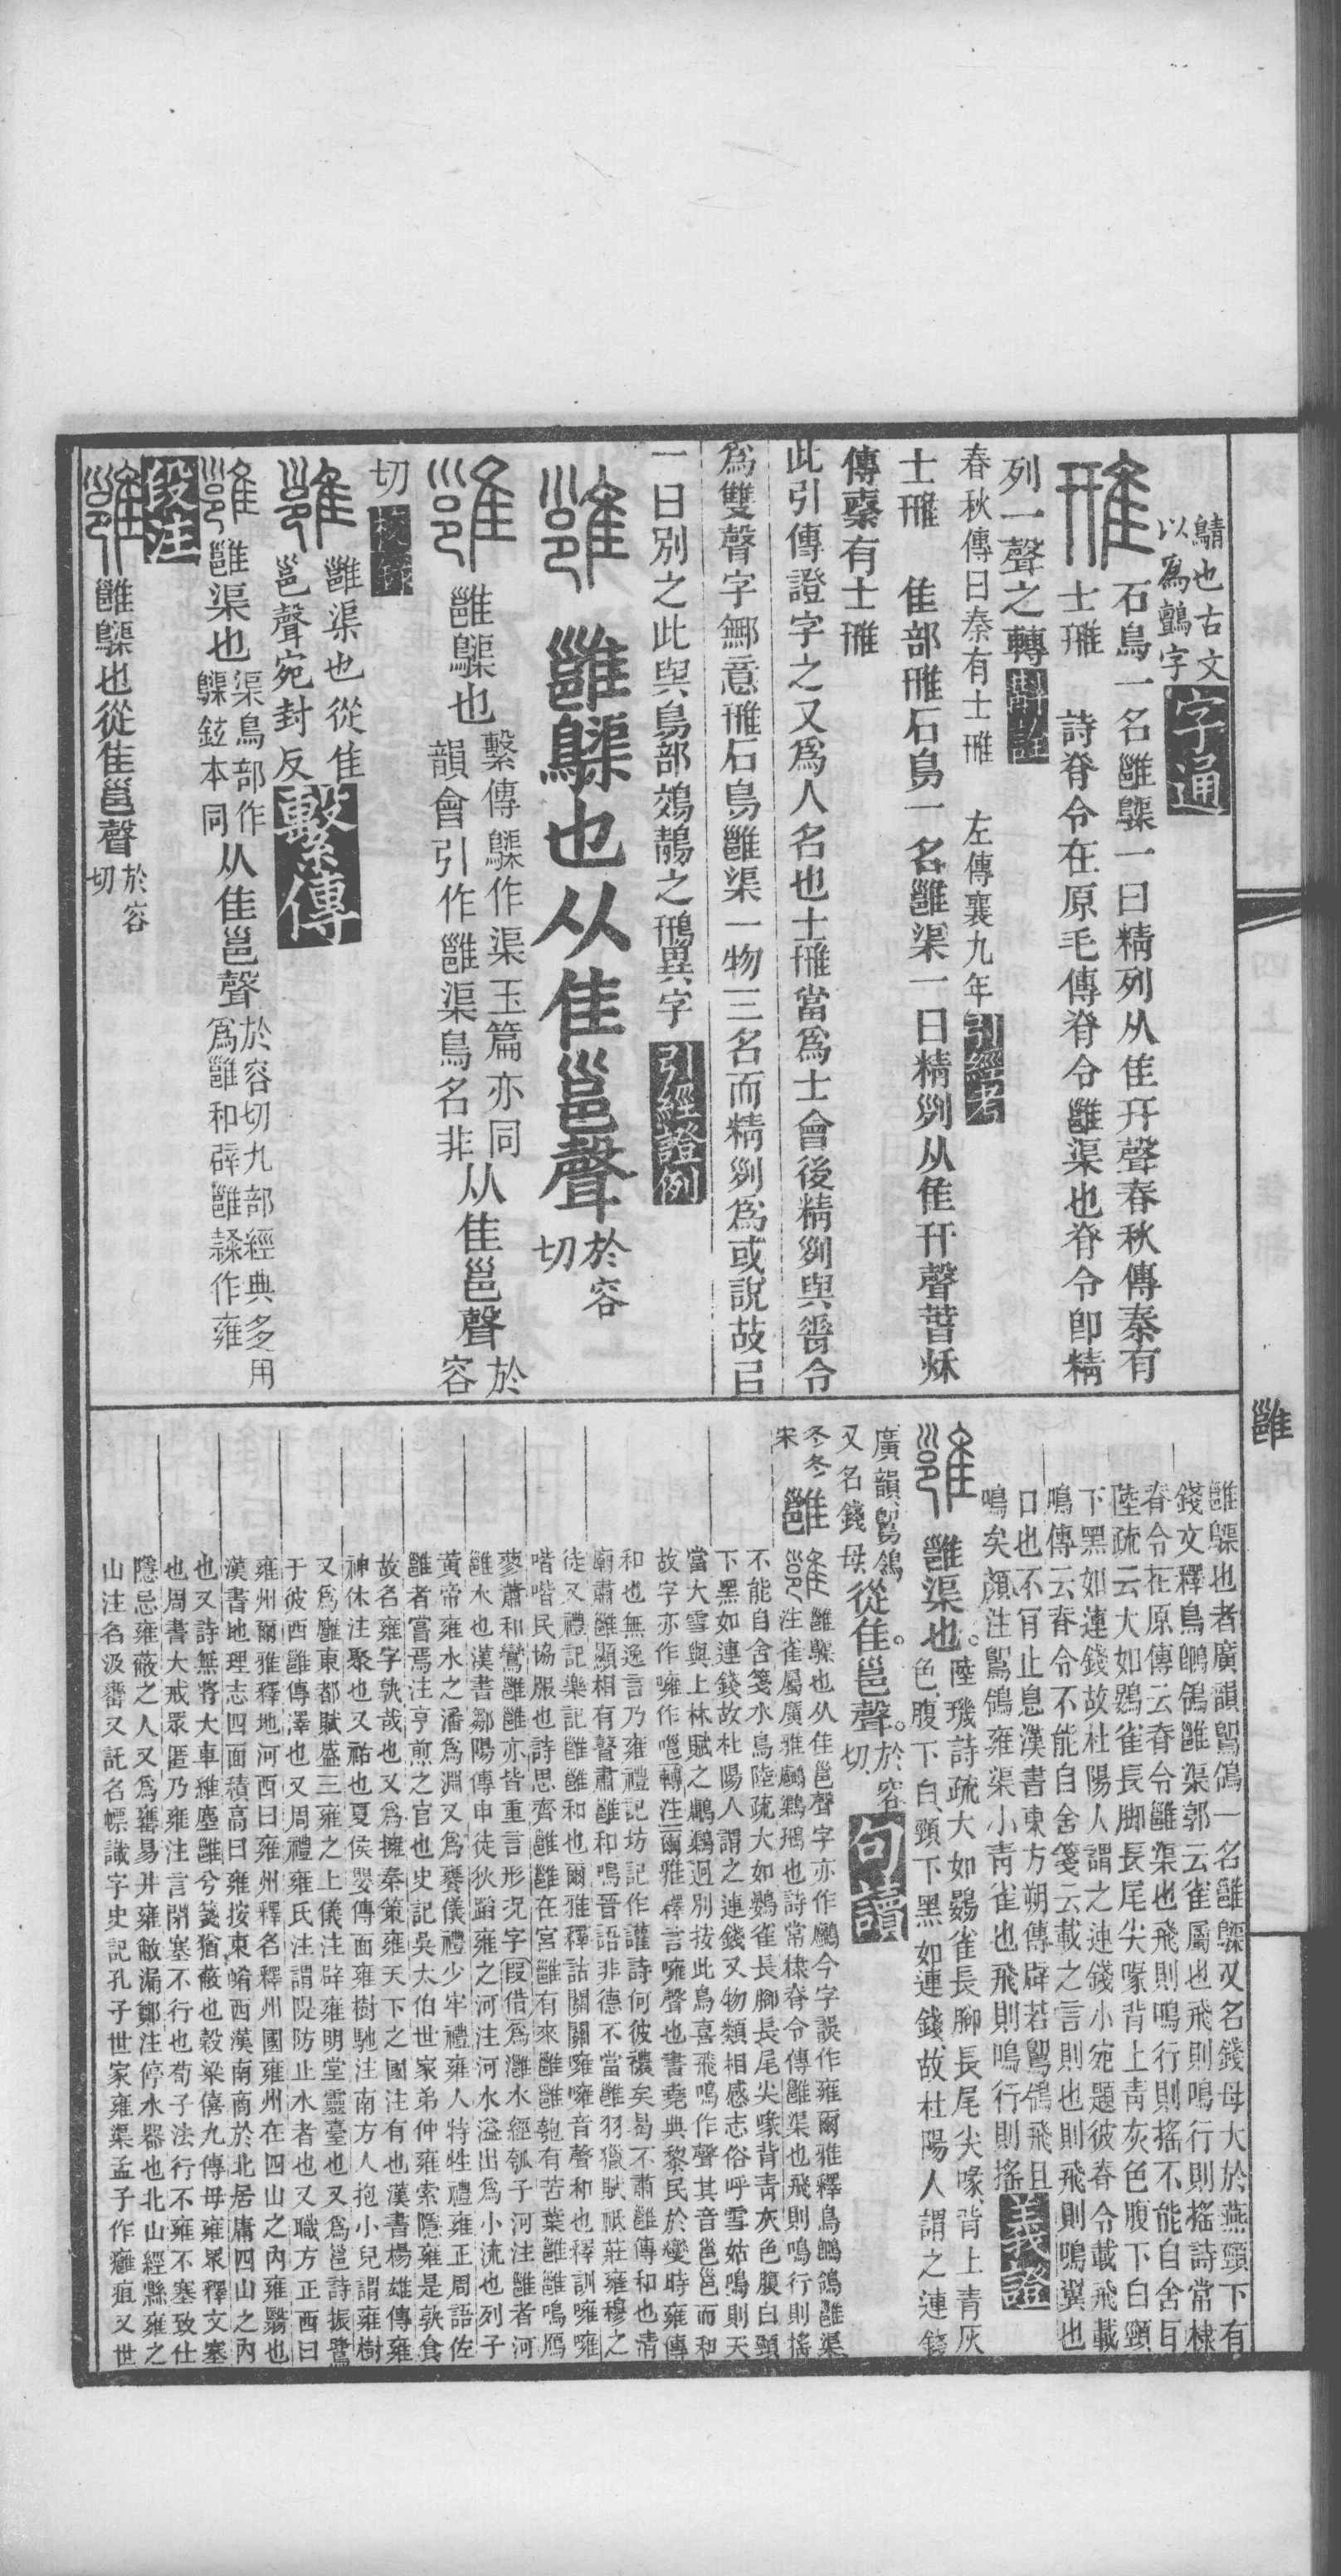 鶄也古文
以爲鸇字
字通
石鳥一名雝䳔一曰精列从隹幵聲春秋傳秦有
士雃　詩脊令在原毛傳脊令雝渠也脊令即精
列一聲之轉
斠詮
春秋傳曰秦有士雃　左傳襄九年
引經考
士雃　隹部雃石鳥一名雝渠一曰精列从隹幵聲春秋
傳秦有士雃
此引傳證字之又爲人名也士雃當爲士會後精列與脊令
爲雙聲字無意雃石鳥雝渠一物三名而精列爲或說故已
一曰別之此與鳥部鵁鶄之鳽異字
引經證例
雝䳔也从隹邕聲
於容
切
雝䳔也
繫傳䳔作渠玉篇亦同
韻會引作雝渠鳥名非
从隹邕聲
於
容
切
雝渠也從隹
邕聲宛封反
繫傳
雝渠也
渠鳥部作
䳔鉉本同
从隹邕聲
於容切九部經典多用
爲雝和辟雝隸作雍
段注
雝䳔也從隹邕聲
於容
切
雝
雝䳔也者廣韻鴝鴒一名雝䳔又名錢母大於燕頸下有
錢文釋鳥鶺鴒雝渠郭云雀屬也飛則鳴行則搖詩常棣
脊令在原傳云脊令雝渠也飛則鳴行則搖不能自舍耳
陸疏云大如鷃雀長腳長尾尖喙背上青灰色腹下白頸
下黑如連錢故杜陽人謂之連錢小宛題彼脊令載飛載
鳴傳云脊令不能自舍箋云載之言則也則飛則鳴翼也
口也不肯止息漢書東方朔傳辟若鴝鴒飛且
鳴矣顏注鴝鴒雍渠小青雀也飛則鳴行則搖
義證
雝渠也。
陸璣詩疏大如鷃雀長腳長尾尖喙、背上青灰
色腹下白、頸下黑如連錢、故杜陽人謂之連錢
廣韻鴝鴒
又名錢母
從隹。邕聲。
於容
切
句讀
雝䳔也从隹邕聲字亦作鷛今字誤作雍爾雅釋鳥鶺鴒雝渠
注雀屬廣雅鷛鸈鳽也詩常棣脊令傳雝渠也飛則鳴行則搖
不能自舍箋水鳥陸疏大如鷃雀長腳長尾尖喙背青灰色腹白頸
下黑如連錢故杜陽人謂之連錢又物類相感志俗呼雪姑鳴則天
當大雪與上林賦之鷛鸈迥別按此鳥喜飛鳴作聲其音邕邕而和
故字亦作噰作嗈轉注爾雅釋言噰聲也書堯典黎民於變時雍傳
和也無逸言乃雍禮記坊記作讙詩何彼襛矣曷不肅雝傳和也清
廟肅雝顯相有瞽肅雝和鳴晉語非德不當雝羽獵賦祗莊雍穆之
徒又禮記樂記雝雝和也爾雅釋詁關關噰噰音聲和也釋訓噰噰
喈喈民協服也詩思齊雝雝在宮雝有來雝雝匏有苦葉雝雝鳴鴈
蓼蕭和鸞雝雝亦皆重言形況字叚借爲灉水經瓠子河注雝者河
雝水也漢書鄒陽傳申徒狄蹈雍之河注河水溢出爲小流也列子
黃帝雍水之潘爲淵又爲饔儀禮少牢禮雍人特牲禮雍正周語佐
雝者嘗焉注亨煎之官也史記吳太伯世家弟仲雍索隱雍是孰食
故名雍字孰哉也又爲擁秦策雍天下之國注有也漢書楊雄傳雍
神休注聚也又祐也夏侯嬰傳面雍樹馳注南方人抱小兒謂雍樹
又爲廱東都賦盛三雍之上儀注辟雍明堂靈臺也又爲邕詩振鷺
于彼西雝傳澤也又周禮雍氏注謂隄防止水者也又職方正西曰
雍州爾雅釋地河西曰雍州釋名釋州國雍州在四山之內雍翳也
漢書地理志四面積高曰雍按東崤西漢南商於北居庸四山之內
也又詩無將大車維塵雝兮箋猶蔽也穀梁僖九傳毋雍泉釋文塞
也周書大戒眾匿乃雍注言閉塞不行也荀子法行不雍不塞致仕
隱忌雍蔽之人又爲罋易井雍敝漏鄭注停水器也北山經縣雍之
山注名汲罋又託名幖識字史記孔子世家雍渠孟子作癰疽又世